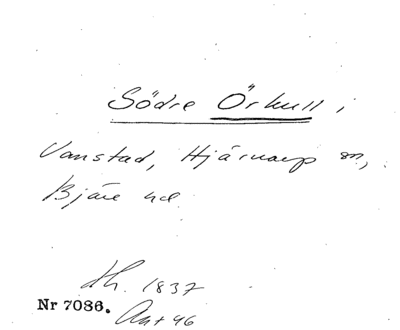 Södre Örkull i
Vanstad, Hjärnarp sn,
Bjäre hd
Lh. 1837
Nr 7086.
Ant 46